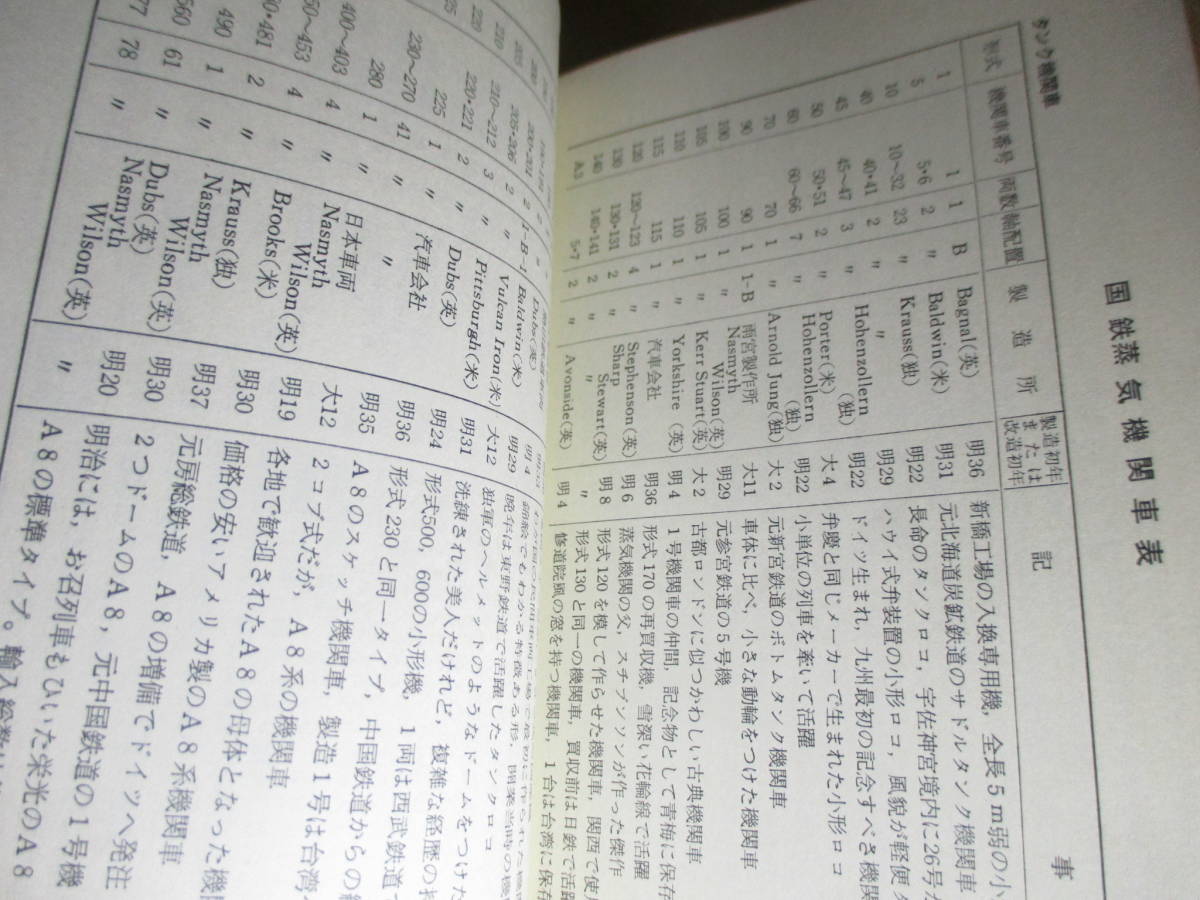 国鉄蒸気機関車表
タンク機関車
形式 機関車番号 両数 軸配置 製造所 製造初年または改造初年 記事
1 1 1 B Bagnal(英) 明36 新橋工場の入換専用機,全長5m弱の小
5 5・6 2 〃 Baldwin(米) 明31 元北海道炭鉱鉄道のサドルタンク機関車
10 10〜32 23 〃 Krauss(独) 明22 長命のタンクロコ,宇佐神宮境内に26号が
40 40・41 2 〃 〃 明29 ハウイ式弁装置の小形ロコ,風貌が軽便
45 45〜47 3 〃 Hohenzollern(独) 明22 ドイツ生まれ,九州最初の記念すべき機関
50 50・51 2 〃 Porter(米) 大4 弁慶と同じメーカーで生まれた小形ロコ
60 60〜66 7 〃 Hohenzollern(独) 明22 小単位の列車を牽いて活躍
70 70 1 〃 Arnold Jung(独) 大2 元新宮鉄道のボトムタンク機関車
90 90 1 1-B 雨宮製作所 大11 車体に比べ,小さな動輪をつけた機関車
100 100 1 〃 Nasmyth Wilson(英) 明29 元参宮鉄道の5号機
105 105 1 〃 Kerr Stuart(英) 大2 古都ロンドンに似つかわしい古典機関車
110 110 1 〃 Yorkshire(英) 明4 1号機関車の仲間,記念物として青梅に保存
115 115 1 〃 汽車会社 明36 形式170の再買収機,雪深い花輪線で活躍
120 120〜123 4 〃 Stephenson(英) 明6 蒸気機関の父,スチブンソンが作った傑作
130 130・131 2 〃 Sharp Stewart(英) 明8 形式120を模して作らせた機関車,関西で使
140 140・141 2 〃 〃 〃 形式130と同一の機関車,買収前は日鉄で活躍
A3 5・7 2 〃 Avonside(英) 明4 修道院風の窓を持つ機関車,1台は台湾に保存
200・201 2 1-B-1 Dubs(英) 明29
205・206 2 〃 Baldwin(米) 大12 晩年は東野鉄道で活躍したタンクロコ
210〜212 3 〃 Vulcan Iron(米) 明31 独軍のヘルメットのようなドームをつけた
220・221 2 〃 Pittsburgh(米) 洗練された美人だけれど,複雑な経歴の持
225 1 〃 Dubs(英) 明24 形式500,600の小形機,1両は西武鉄道
230〜270 41 〃 汽車会社 明36 形式230と同一タイプ,中国鉄道からの
280 1 〃 〃 明35 A8のスケッチ機関車,製造1号は台湾
400〜403 4 〃 日本車両 大12 2コブ式だが,A8系の機関車
50〜453 4 〃 Nasmyth Wilson(英) 明19 各地で歓迎されたA8の母体となった機
0・481 2 〃 Brooks(米) 明30 価格の安いアメリカ製のA8系機関車
490 1 〃 Krauss(独) 明37 元房総鉄道,A8の増備でドイツへ発注
560 61 〃 Nasmyth Wilson(英) 明30 2つドームのA8,元中国鉄道の1号機
77 78 〃 Dubs(英) 明20 明治には,お召列車もひいた栄光のA8
Nasmyth Wilson 〃 A8の標準タイプ。輸入総数